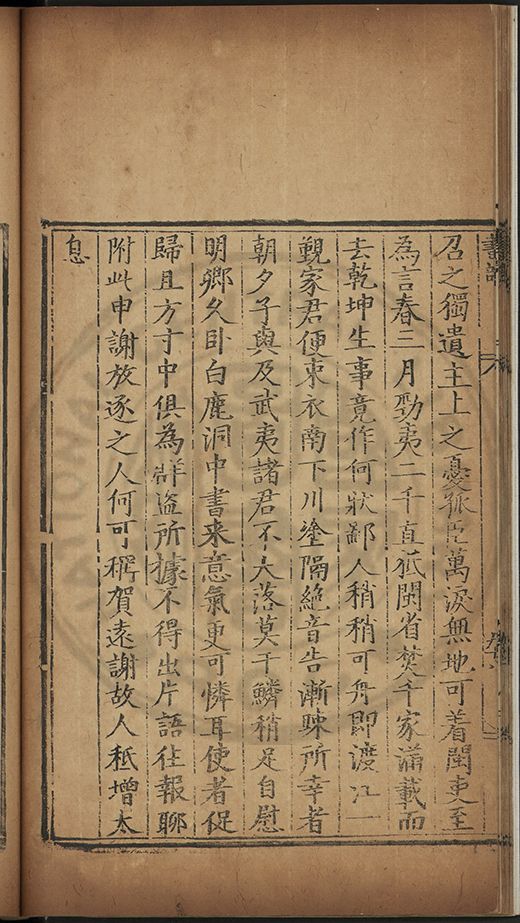 召之獨遺主上之憂孤臣萬淚無地可着閩吏至
為言春三月勁夷二千直抵閩省焚千家滿載而
去乾坤生事竟作何狀鄙人稍稍可舟即渡江一
覲家君便束衣南下川塗隔絶音告漸踈所幸者
朝夕子與及武夷諸君不大落莫干鱗稍足自慰
明卿久卧白鹿洞中書来意氣更可憐耳使者促
歸且方寸中俱為群盗所據不得出片語往報聊
附此申謝放逐之人何可稱賀遠謝故人秪增太
息